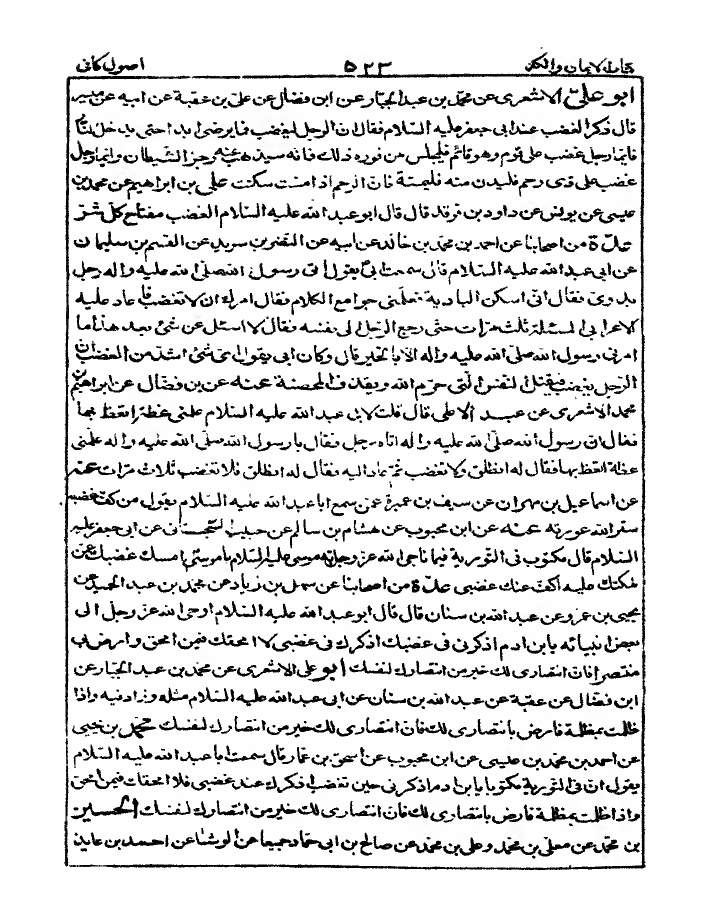 كتاب الايمان والكفر ٥٢٣ اصول كافي
ابو علي الاشعرى عن محمد بن عبد الجبار عن ابن فضال عن علي بن عقبة عن ابيه عن ميسر
قال ذكر الغضب عند ابى جعفر عليه السلام فقال ان الرجل ليغضب فما يرضى ابدا حتى يدخل النار
فايما رجل غضب على قوم وهو قائم فليجلس من فوره ذلك فانه سيذهب عنه رجز الشيطان وايما رجل
غضب على ذى رحم فليدن منه فليمسه فان الرحم اذا مست سكنت علي بن ابراهيم عن محمد بن
عيسى عن يونس عن داود بن فرقد قال قال ابو عبد الله عليه السلام الغضب مفتاح كل شر
عدة من اصحابنا عن احمد بن محمد بن خالد عن ابيه عن النضر بن سويد عن القسم بن سليمان
عن ابى عبد الله عليه السلام قال سمعت ابى يقول اتى رسول الله صلى الله عليه واله رجل
بدوى فقال انى اسكن البادية فعلمنى جوامع الكلام فقال امرك ان لا تغضب فاعاد عليه
الاعرابى المسئلة ثلث مرات حتى رجع الرجل الى نفسه فقال لا اسئل عن شئ بعد هذا ما
امرنى رسول الله صلى الله عليه واله الا بالخير قال وكان ابى يقول اى شئ اشد من الغضب ان
الرجل يغضب فيقتل النفس التى حرم الله ويقذف المحصنة عنه عن بن فضال عن ابراهيم بن
محمد الاشعرى عن عبد الاعلى قال قلت لابى عبد الله عليه السلام علمنى عظة اتعظ بها
فقال ان رسول الله صلى الله عليه واله اتاه رجل فقال يا رسول الله صلى الله عليه واله علمنى
عظة اتعظ بها فقال له انطلق ولا تغضب ثم عاد اليه فقال له انطلق فلا تغضب ثلاث مرات عنه
عن اسماعيل بن مهران عن سيف بن عميرة عمن سمع ابا عبد الله عليه السلام يقول من كف غضبه
ستر الله عورته عنه عن ابن محبوب عن هشام بن سالم عن حبيب السجستانى عن ابى جعفر عليه
السلام قال مكتوب فى التورية فيما ناجى الله عز وجل به موسى عليه السلام يا موسى امسك غضبك عمن
ملكتك عليه اكف عنك غضبى عدة من اصحابنا عن سهل بن زياد عن محمد بن عبد الحميد عن
يحيى بن عمرو عن عبد الله بن سنان قال قال ابو عبد الله عليه السلام اوحى الله عز وجل الى
بعض انبيائه يا بن ادم اذكرنى فى غضبك اذكرك فى غضبى لا امحقك فيمن امحق وارض بى
منتصرا فان انتصارى لك خير من انتصارك لنفسك ابو على الاشعرى عن محمد بن عبد الجبار عن
ابن فضال عن عقبة عن عبد الله بن سنان عن ابى عبد الله عليه السلام مثله وزاد فيه واذا
ظلمت بمظلمة فارض بانتصارى لك فان انتصارى لك خير من انتصارك لنفسك محمد بن يحيى
عن احمد بن محمد بن عيسى عن ابن محبوب عن اسحق بن عمار قال سمعت ابا عبد الله عليه السلام
يقول ان فى التورية مكتوبا يا بن ادم اذكرنى حين تغضب اذكرك عند غضبى فلا امحقك فيمن امحق
واذا ظلمت بمظلمة فارض بانتصارى لك فان انتصارى لك خير من انتصارك لنفسك الحسين
بن محمد عن معلى بن محمد وعلى بن محمد عن صالح بن ابى حماد جميعا عن الوشا عن احمد بن عايذ